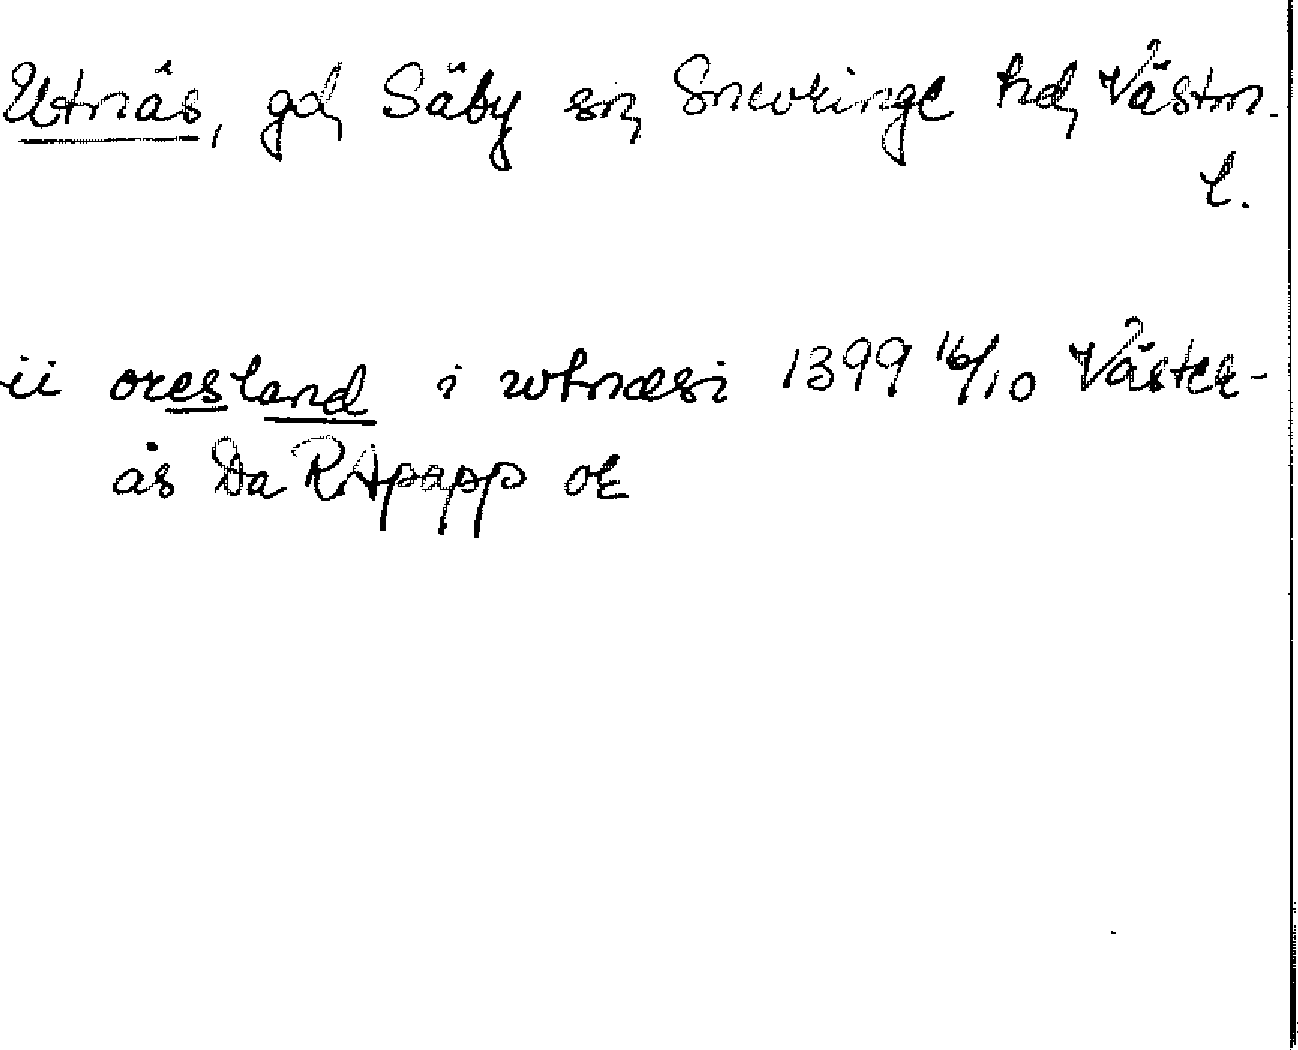 Utnäs, gd, Säby sn, Snevringe hd, Västm.
l.
ii oresland i wtnæsi 1399 16/10 Väster-
ås Da RApapp or